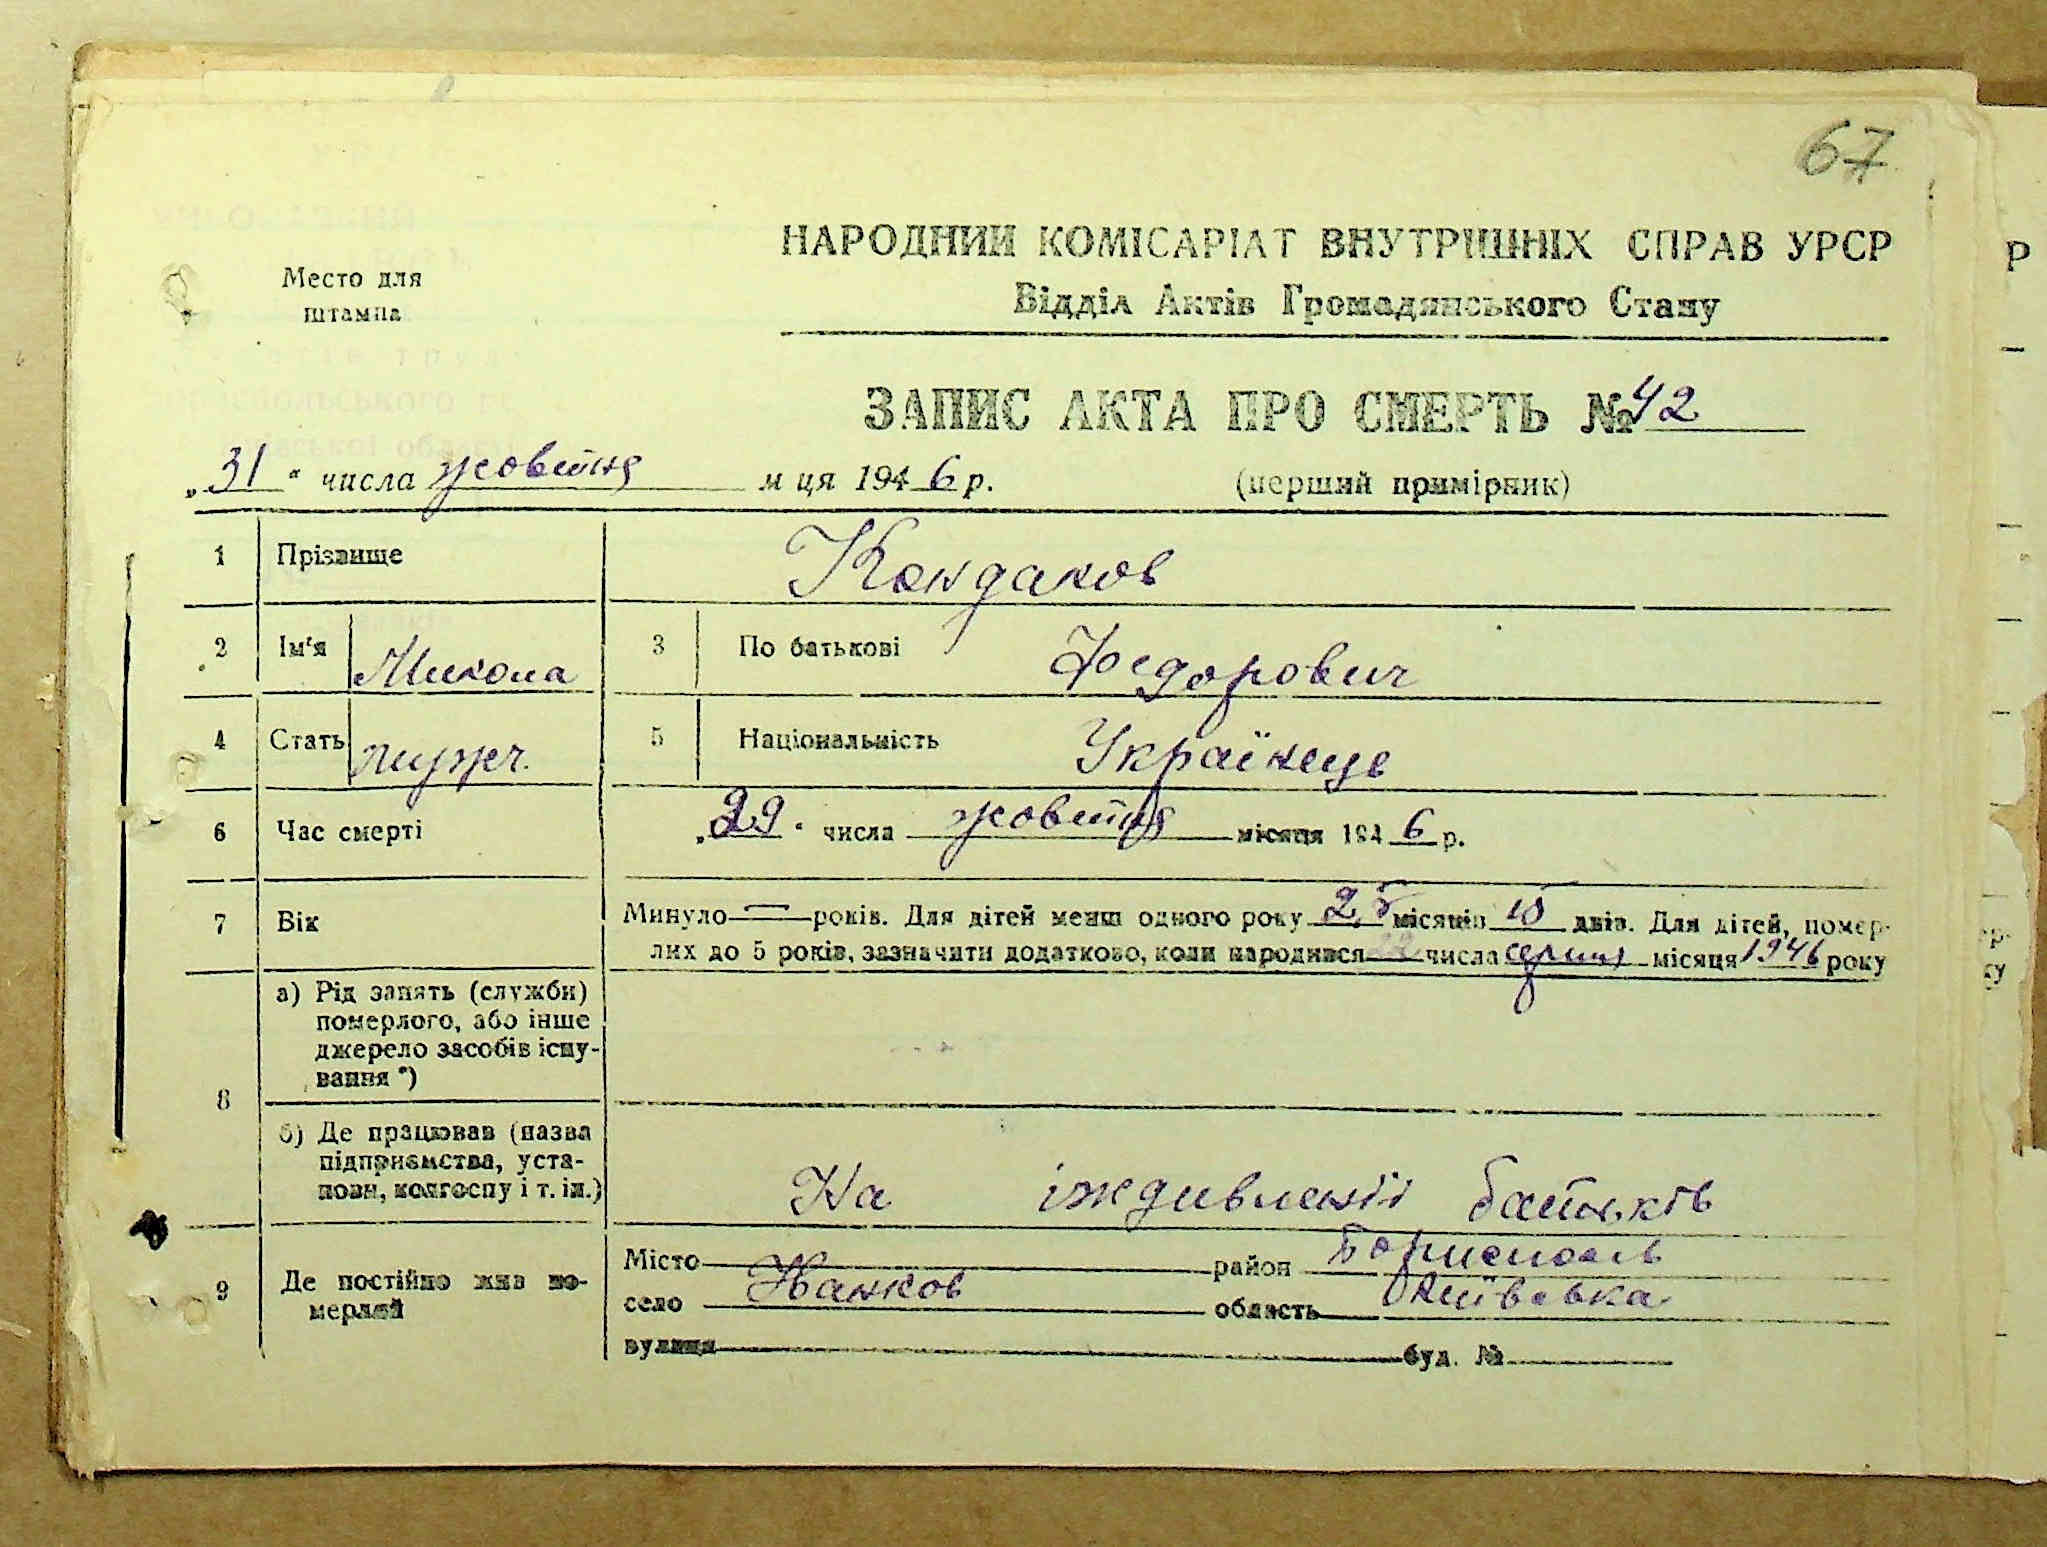 67
Место для
штампа
НАРОДНИЙ КОМІСАРІАТ ВНУТРІШНІХ СПРАВ УРСР
Відділ Актів Громадянського Стану
ЗАПИС АКТА ПРО СМЕРТЬ № 42
„31“ числа жовтня м ця 1946 р.
(перший примірник)
1 Прізвище Кондаков
2 Ім'я Микола 3 По батькові Федорович
4 Стать мужч. 5 Національність Українець
6 Час смерті „29“ числа жовтня місяця 1946 р.
7 Вік Минуло — років. Для дітей менш одного року 2,5 місяців 15 днів. Для дітей, помер-
лих до 5 років, зазначити додатково, коли народився числа серпня місяця 1946 року
8 а) Рід занять (служби)
померлого, або інше
джерело засобів існу-
вання *)
б) Де працював (назва
підприємства, уста-
нови, колгоспу і т. ін.) На іждивленії батьків
9 Де постійно жив по-
мерлий
Місто район Бориспольв
село Иванков область Київська
вулиця буд. №